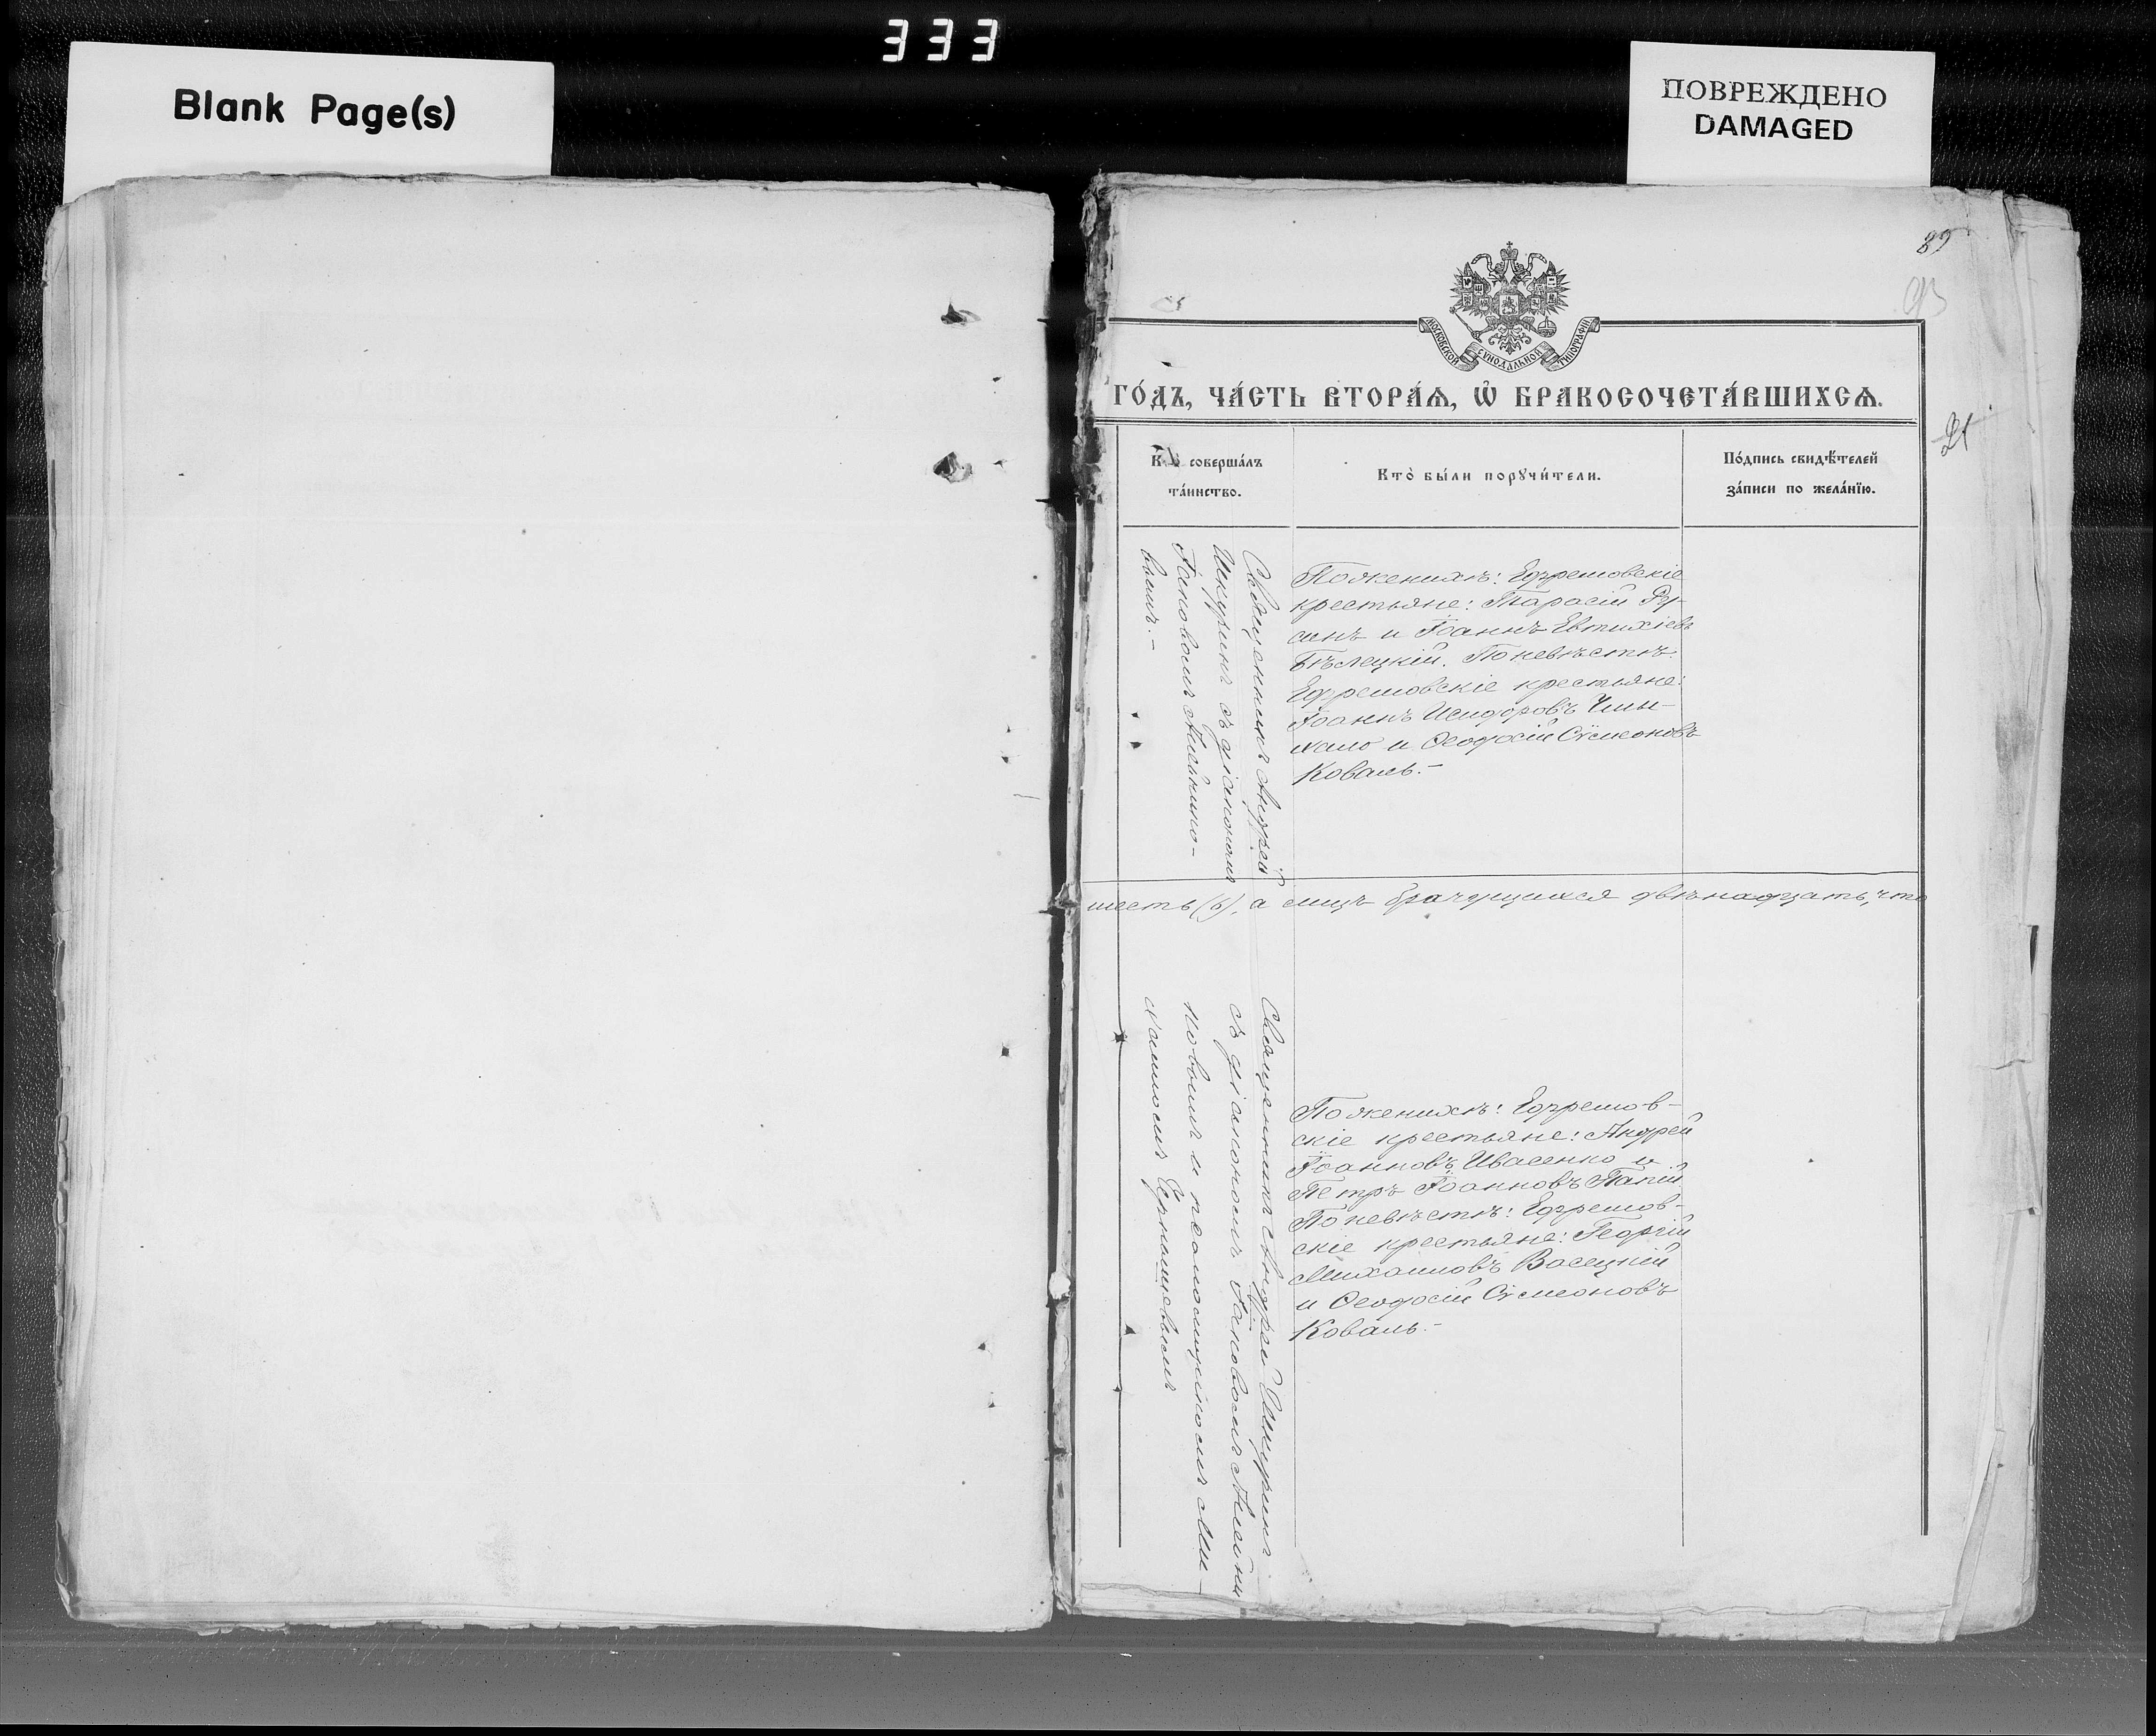 333
Blank Page(s)
ПОВРЕЖДЕНО
DAMAGED
89
93
МОСКОВСКОЙ СѴНОДАЛЬНОЙ ТИПОГРАФІИ
ГО́ДЪ, ЧА́СТЬ ВТОРА́Ѧ, Ѽ БРАКОСОЧЕТА́ВШИХСѦ.
21
совершáлъ
тáинство.
Ктò бы́ли порꙋчи́тели.
Пóдпись свидѣ́телей
зáписи по желáнїю.
Священникъ Андрей
Шкуринъ съ діакономъ
Іаковомъ Алейнико-
вымъ.-
По женихѣ: Ефремовскіе
крестьяне: Тарасій Ру-
синъ и Іоаннъ Евтихіевъ
Бѣлецкій. По невѣстѣ:
Ефремовскіе крестьяне:
Іоаннъ Исидоровъ Чмы-
хало и Ѳеодосій Сѵмеоновъ
Коваль.-
шесть (6), а лицъ брачущихся двѣнадцать, что
Священникъ Андрей Шкуринъ
съ діакономъ Іаковомъ Алейни
ковымъ и псаломщикомъ Ми-
хаиломъ Чернышевымъ
По женихѣ: Ефремов-
скіе крестьяне: Андрей
Іоанновъ Ивасенко и
Петръ Іоанновъ Папій
По невѣстѣ: Ефремов-
скіе крестьяне: Георгій
Михаиловъ Восецкій
и Ѳеодосій Сѵмеоновъ
Коваль.-